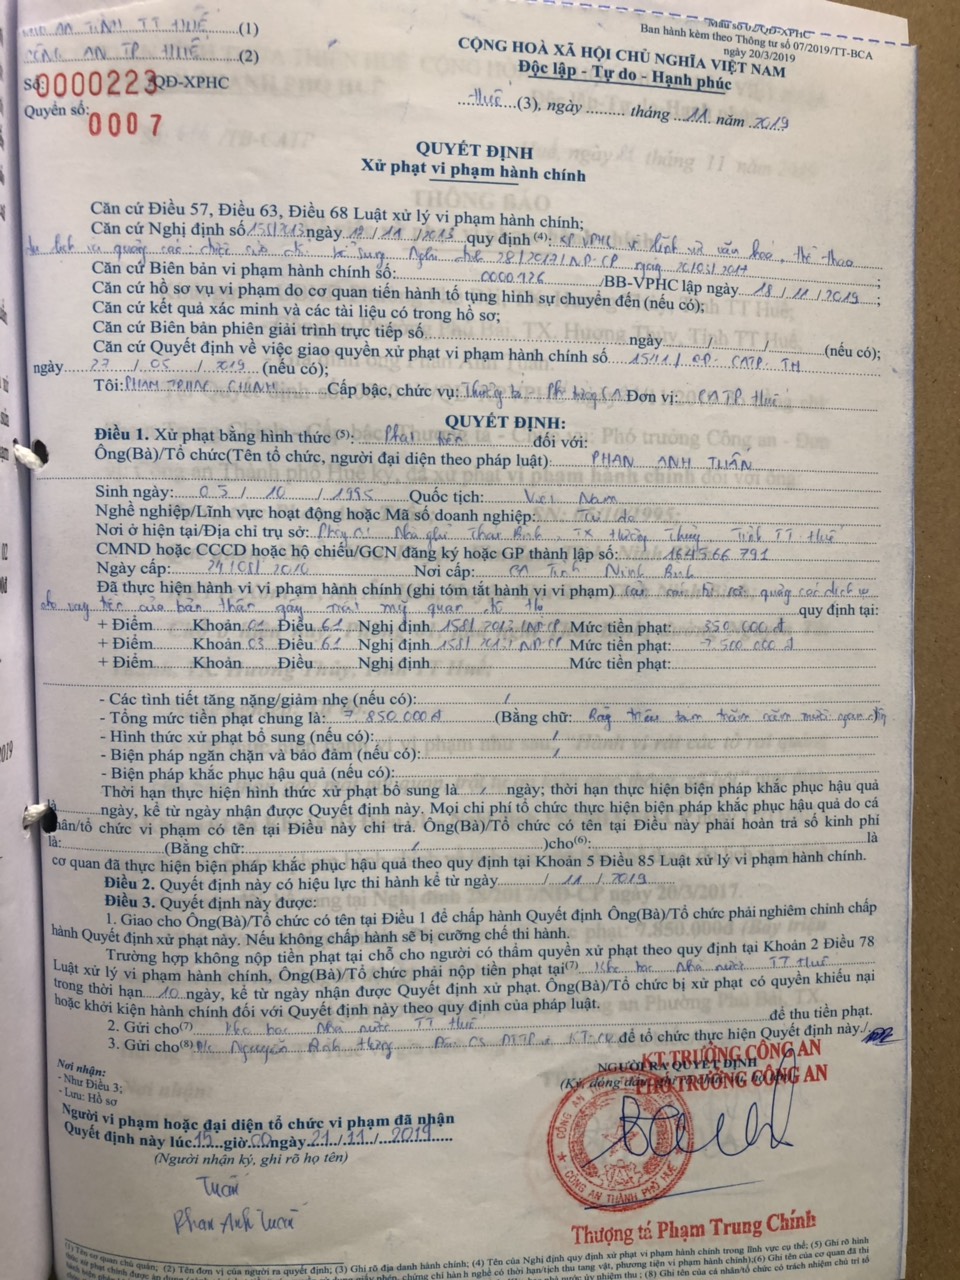 Mẫu số 02/QĐ-XPHC
Ban hành kèm theo Thông tư số 07/2019/TT-BCA
ngày 20/3/2019
CÔNG AN TỈNH TT HUẾ (1)
CÔNG AN TP HUẾ (2)
Số: 0000223 /QĐ-XPHC
Quyển số: 0007
CỘNG HOÀ XÃ HỘI CHỦ NGHĨA VIỆT NAM
Độc lập - Tự do - Hạnh phúc
Huế (3), ngày ......... tháng 11 năm 2019
QUYẾT ĐỊNH
Xử phạt vi phạm hành chính
Căn cứ Điều 57, Điều 63, Điều 68 Luật xử lý vi phạm hành chính;
Căn cứ Nghị định số 158/2013 ngày 12/11/2013 quy định (4): XP VPHC về lĩnh vực văn hoá, thể thao
du lịch và quảng cáo; sửa đổi bổ sung Nghị định 28/2017/NĐ-CP ngày 20/03/2017
Căn cứ Biên bản vi phạm hành chính số: 0000126 /BB-VPHC lập ngày 18/11/2019;
Căn cứ hồ sơ vụ vi phạm do cơ quan tiến hành tố tụng hình sự chuyển đến (nếu có);
Căn cứ kết quả xác minh và các tài liệu có trong hồ sơ;
Căn cứ Biên bản phiên giải trình trực tiếp số ngày / / (nếu có);
Căn cứ Quyết định về việc giao quyền xử phạt vi phạm hành chính số 1511/QĐ-CATP-TH
ngày 27/05/2019 (nếu có);
Tôi: PHẠM TRUNG CHÍNH Cấp bậc, chức vụ: Thượng tá, Phó trưởng CA Đơn vị: CATP Huế
QUYẾT ĐỊNH:
Điều 1. Xử phạt bằng hình thức (5): Phạt tiền đối với:
Ông(Bà)/Tổ chức(Tên tổ chức, người đại diện theo pháp luật): PHAN ANH TUẤN
Sinh ngày: 05/10/1995 Quốc tịch: Việt Nam
Nghề nghiệp/Lĩnh vực hoạt động hoặc Mã số doanh nghiệp: Tự do
Nơi ở hiện tại/Địa chỉ trụ sở: Nhà nghỉ Thái Bình, TX Hương Thủy, Tỉnh TT Huế
CMND hoặc CCCD hoặc hộ chiếu/GCN đăng ký hoặc GP thành lập số: 164566791
Ngày cấp: 24/08/2010 Nơi cấp: CA Tỉnh Ninh Bình
Đã thực hiện hành vi vi phạm hành chính (ghi tóm tắt hành vi vi phạm) tờ rơi quảng cáo dịch vụ
cho vay tiền của bản thân gây mất mỹ quan đô thị quy định tại:
+ Điểm Khoản 01 Điều 61 Nghị định 158/2013/NĐ-CP Mức tiền phạt: 350.000đ
+ Điểm Khoản 03 Điều 61 Nghị định 158/2013/NĐ-CP Mức tiền phạt: 7.500.000đ
+ Điểm Khoản Điều Nghị định Mức tiền phạt:
- Các tình tiết tăng nặng/giảm nhẹ (nếu có): /
- Tổng mức tiền phạt chung là: 7.850.000đ (Bằng chữ: Bảy triệu tám trăm năm mươi ngàn đồng
- Hình thức xử phạt bổ sung (nếu có): /
- Biện pháp ngăn chặn và bảo đảm (nếu có): /
- Biện pháp khắc phục hậu quả (nếu có):
Thời hạn thực hiện hình thức xử phạt bổ sung là / ngày; thời hạn thực hiện biện pháp khắc phục hậu quả
là ngày, kể từ ngày nhận được Quyết định này. Mọi chi phí tổ chức thực hiện biện pháp khắc phục hậu quả do cá
nhân/tổ chức vi phạm có tên tại Điều này chi trả. Ông(Bà)/Tổ chức có tên tại Điều này phải hoàn trả số kinh phí
là: (Bằng chữ: / )cho(6): là
cơ quan đã thực hiện biện pháp khắc phục hậu quả theo quy định tại Khoản 5 Điều 85 Luật xử lý vi phạm hành chính.
Điều 2. Quyết định này có hiệu lực thi hành kể từ ngày /11/2019
Điều 3. Quyết định này được:
1. Giao cho Ông(Bà)/Tổ chức có tên tại Điều 1 để chấp hành Quyết định Ông(Bà)/Tổ chức phải nghiêm chỉnh chấp
hành Quyết định xử phạt này. Nếu không chấp hành sẽ bị cưỡng chế thi hành.
Trường hợp không nộp tiền phạt tại chỗ cho người có thẩm quyền xử phạt theo quy định tại Khoản 2 Điều 78
Luật xử lý vi phạm hành chính, Ông(Bà)/Tổ chức phải nộp tiền phạt tại(7) Kho bạc Nhà nước TT Huế
trong thời hạn 10 ngày, kể từ ngày nhận được Quyết định xử phạt. Ông(Bà)/Tổ chức bị xử phạt có quyền khiếu nại
hoặc khởi kiện hành chính đối với Quyết định này theo quy định của pháp luật.
2. Gửi cho(7) Kho bạc Nhà nước TT Huế để thu tiền phạt.
3. Gửi cho(8) Đ/c Nguyễn Đình Đội CS ĐTTP KT-CV để tổ chức thực hiện Quyết định này./.
Nơi nhận:
- Như Điều 3;
- Lưu: Hồ sơ
NGƯỜI RA QUYẾT ĐỊNH
(Ký, đóng dấu, ghi rõ
KT.TRƯỞNG CÔNG AN
PHÓ TRƯỞNG CÔNG AN
Người vi phạm hoặc đại diện tổ chức vi phạm đã nhận
Quyết định này lúc 15 giờ 00 ngày 21/11/2019
(Người nhận ký, ghi rõ họ tên)
Tuấn
Phan Anh Tuấn
CÔNG AN THÀNH PHỐ HUẾ
Thượng tá Phạm Trung Chính
(1) Tên cơ quan chủ quản; (2) Tên đơn vị của người ra quyết định; (3) Ghi rõ địa danh hành chính; (4) Tên của Nghị định quy định xử phạt vi phạm hành chính trong lĩnh vực cụ thể; (5) Ghi rõ hình